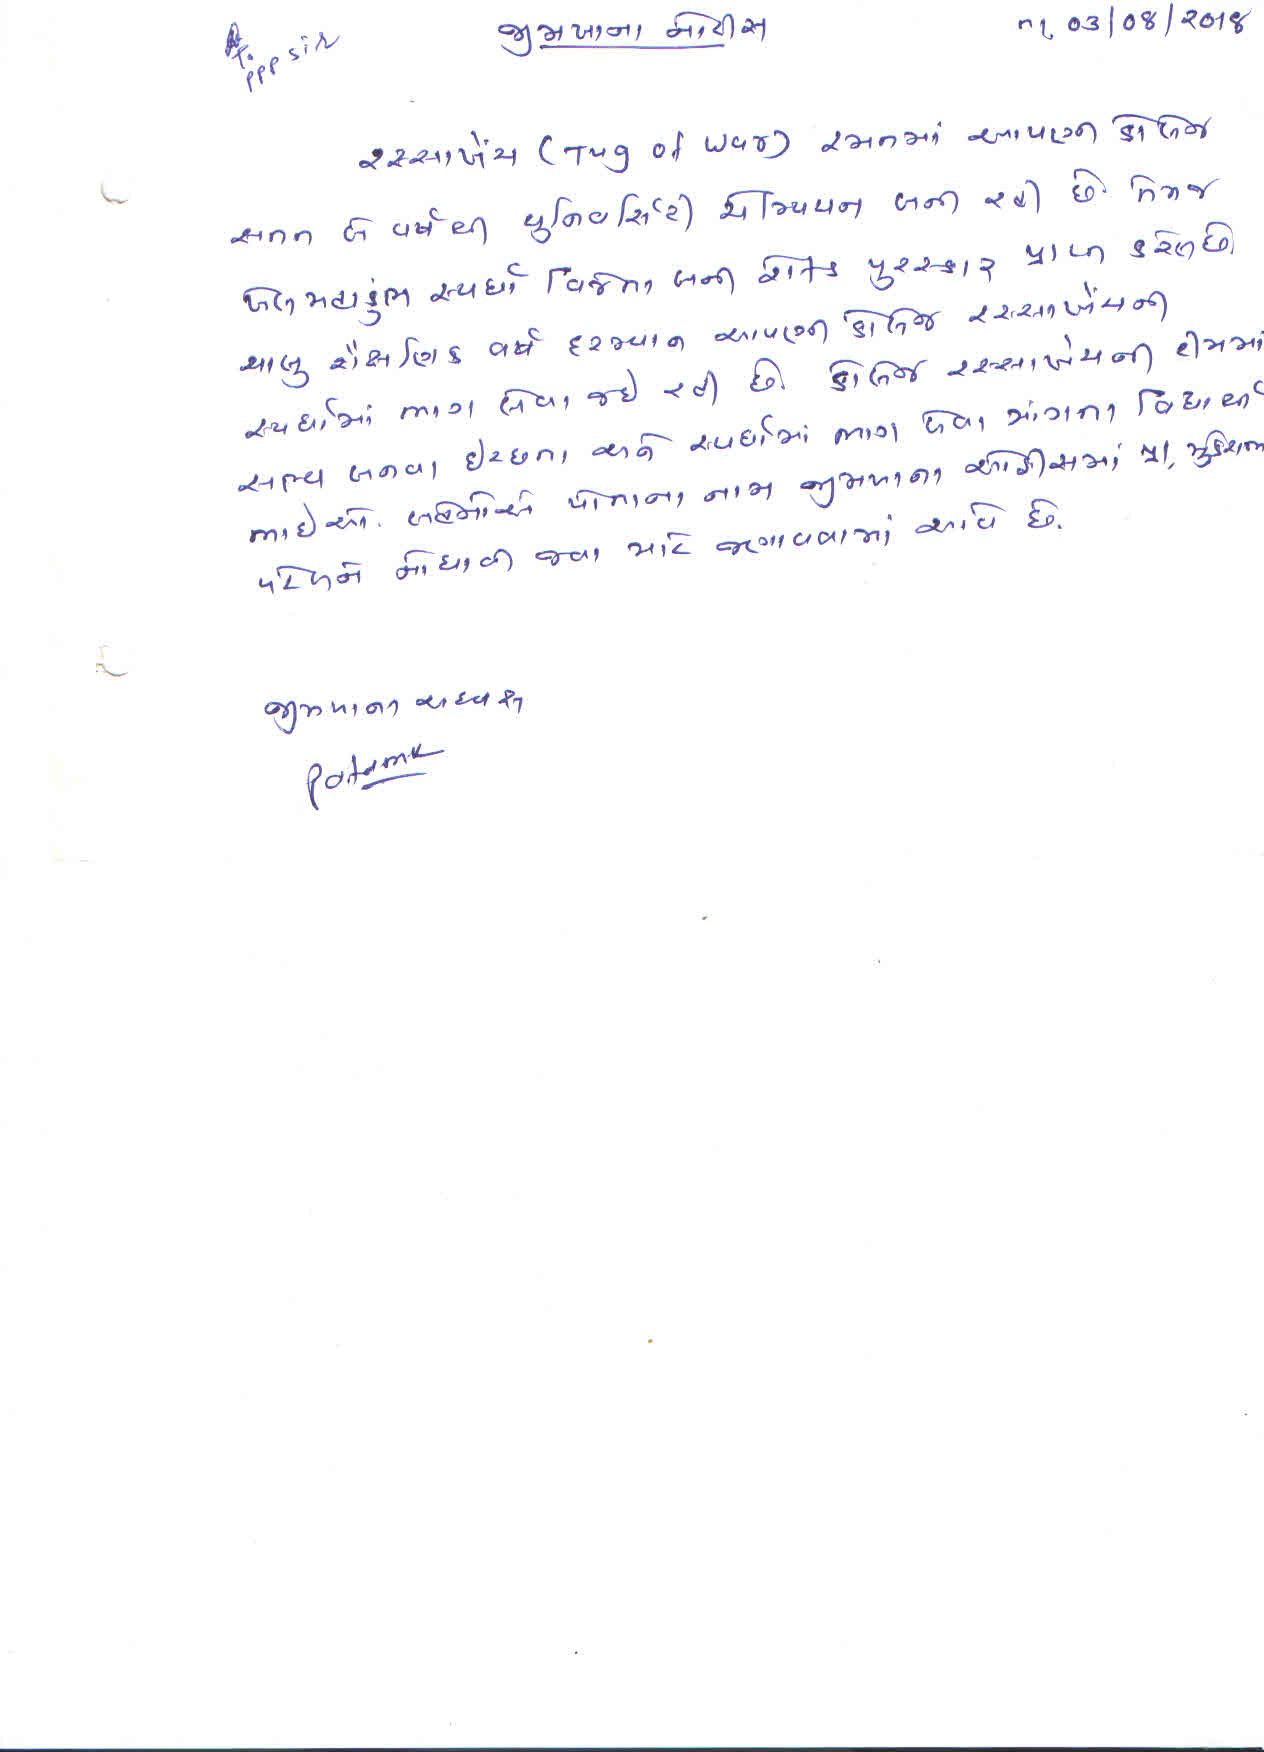 To.
ppp sir
જીમખાના નોટીસ
તા. 03/08/2018
રસ્સાખેંચ (Tug of War) રમતમાં આપણી કોલેજ
સતત બે વર્ષથી યુનિવર્સિટી ચેમ્પિયન બની રહી છે. તેમજ
ખેલ મહાકુંભ સ્પર્ધા વિજેતા બની રોકડ પુરસ્કાર પ્રાપ્ત કરેલ છે.
ચાલુ શૈક્ષણિક વર્ષ દરમ્યાન આપણી કોલેજ રસ્સાખેંચની
સ્પર્ધામાં ભાગ લેવા જઈ રહી છે. કોલેજ રસ્સાખેંચની ટીમમાં
સભ્ય બનવા ઈચ્છતા અને સ્પર્ધામાં ભાગ લેવા માંગતા વિદ્યાર્થી
ભાઈઓ. બહેનોએ પોતાના નામ જીમખાના ઓફીસમાં પ્રા. મુકેશભાઈ
પટેલને નોંધાવી જવા માટે જણાવવામાં આવે છે.
જીમખાના અધ્યક્ષ